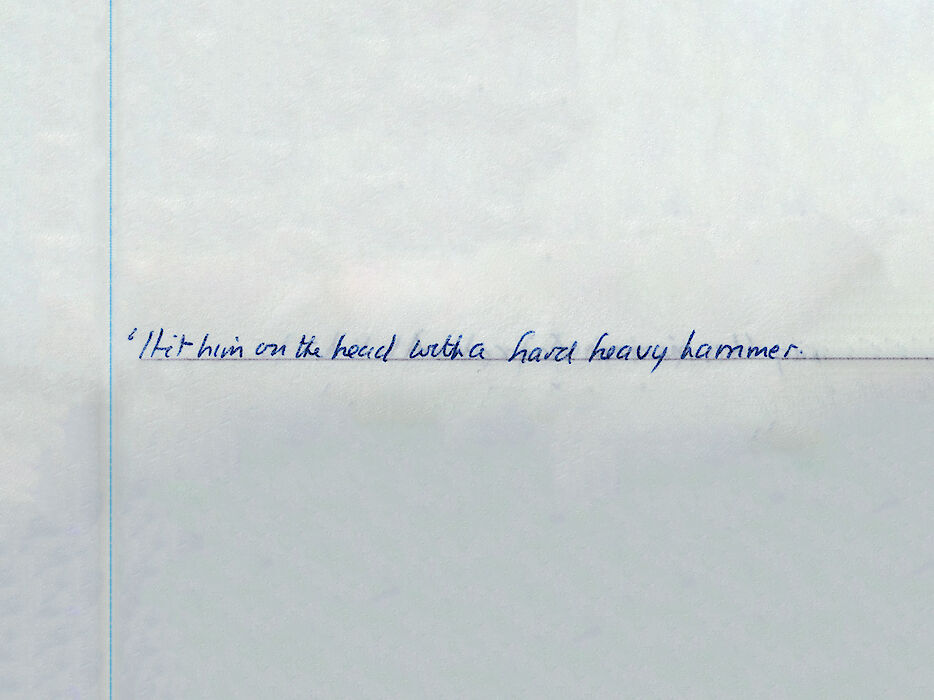 'I hit him on the head with a hard heavy hammer.